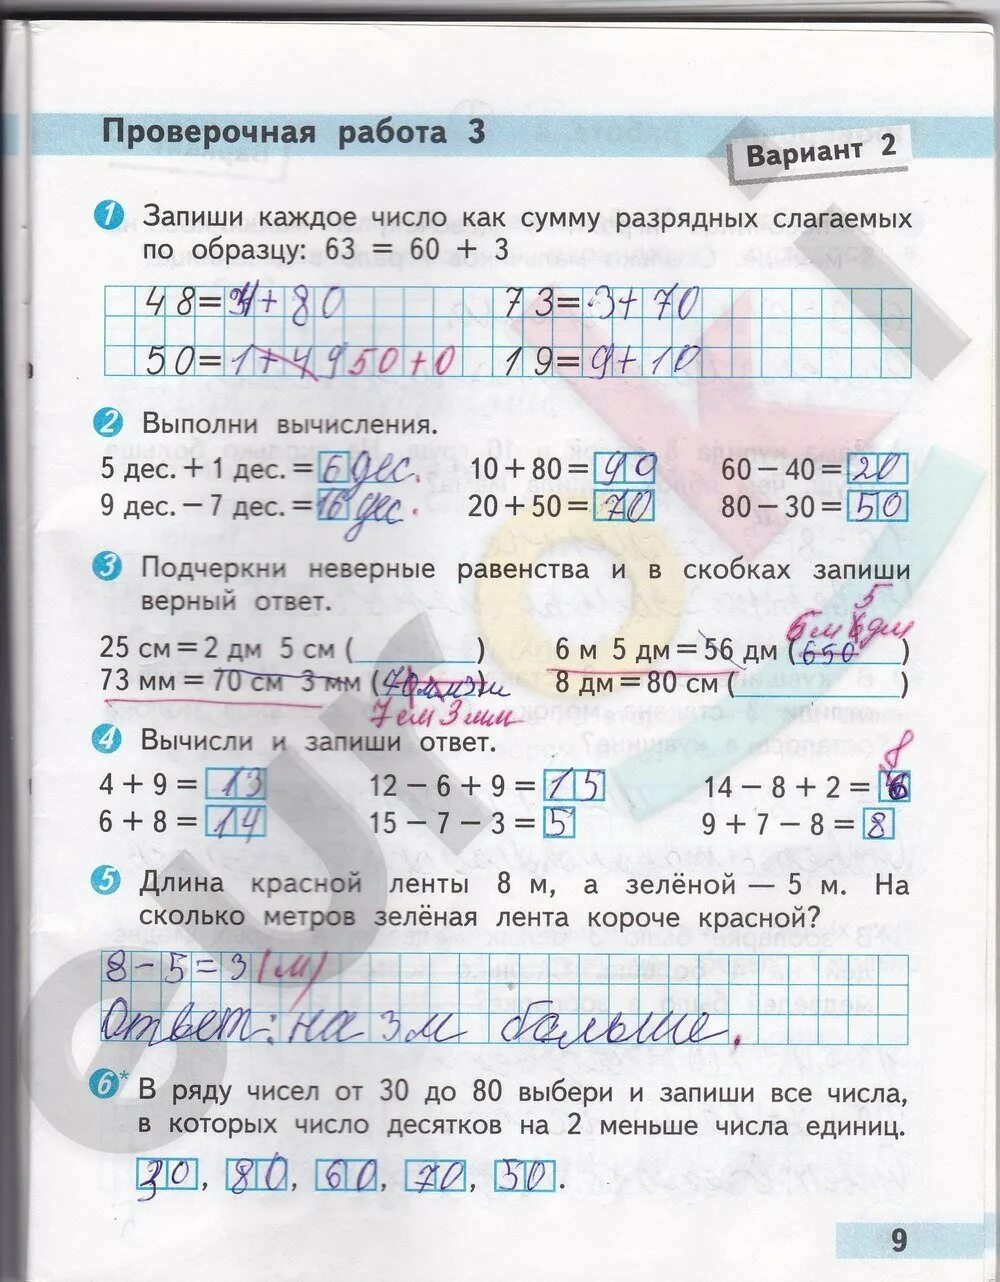 Проверочная работа 3
Вариант 2
1 Запиши каждое число как сумму разрядных слагаемых
по образцу: 63 = 60 + 3
48= + 80 73=3+70
50=1+49 50+0 19=9+10
2 Выполни вычисления.
5 дес. + 1 дес. = 6 дес. 10 + 80 = 90 60 − 40 = 20
9 дес. − 7 дес. = 16 дес. 20 + 50 = 70 80 − 30 = 50
3 Подчеркни неверные равенства и в скобках запиши
верный ответ.
5
6м дм
25 см = 2 дм 5 см ( ) 6 м 5 дм = 56 дм (650 )
73 мм = 70 см 3 мм ( ) 8 дм = 80 см ( )
7 см 3 мм
4 Вычисли и запиши ответ.
8
4 + 9 = 13 12 − 6 + 9 = 15 14 − 8 + 2 = 6
6 + 8 = 14 15 − 7 − 3 = 5 9 + 7 − 8 = 8
5 Длина красной ленты 8 м, а зелёной — 5 м. На
сколько метров зелёная лента короче красной?
8−5=3(м)
Ответ: на 3м больше.
6* В ряду чисел от 30 до 80 выбери и запиши все числа,
в которых число десятков на 2 меньше числа единиц.
30, 80, 60, 70, 50.
9